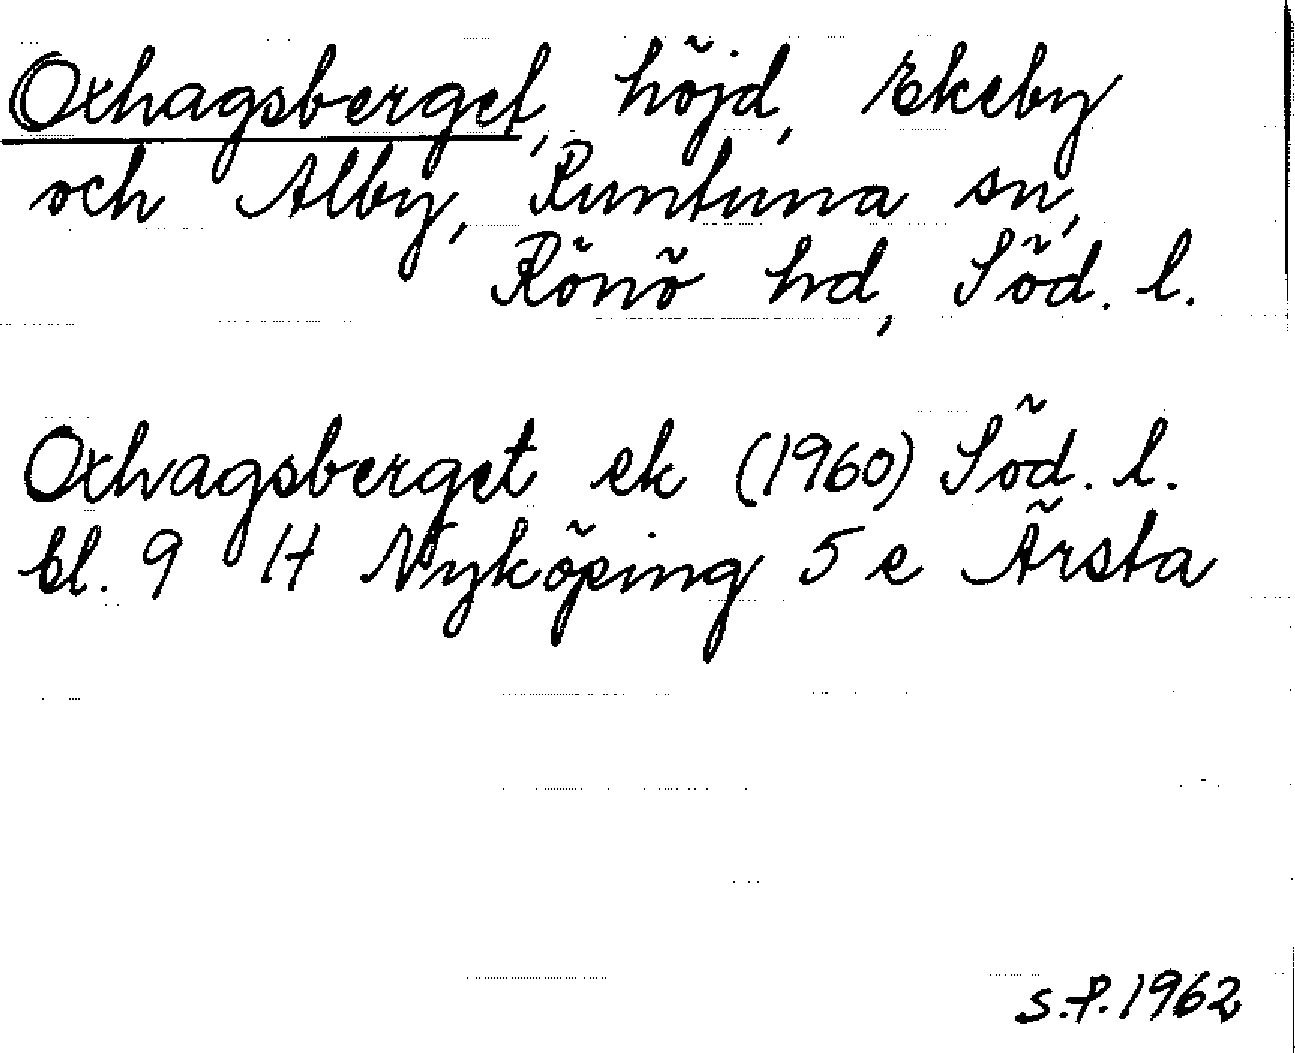 Oxhagsberget, höjd, Ekeby
och Alby, Runtuna sn,
Rönö hd, Söd. l.
Oxhagsberget ek (1960) Söd. l.
bl. 9 H Nyköping 5 e Ärsta
S.P. 1962